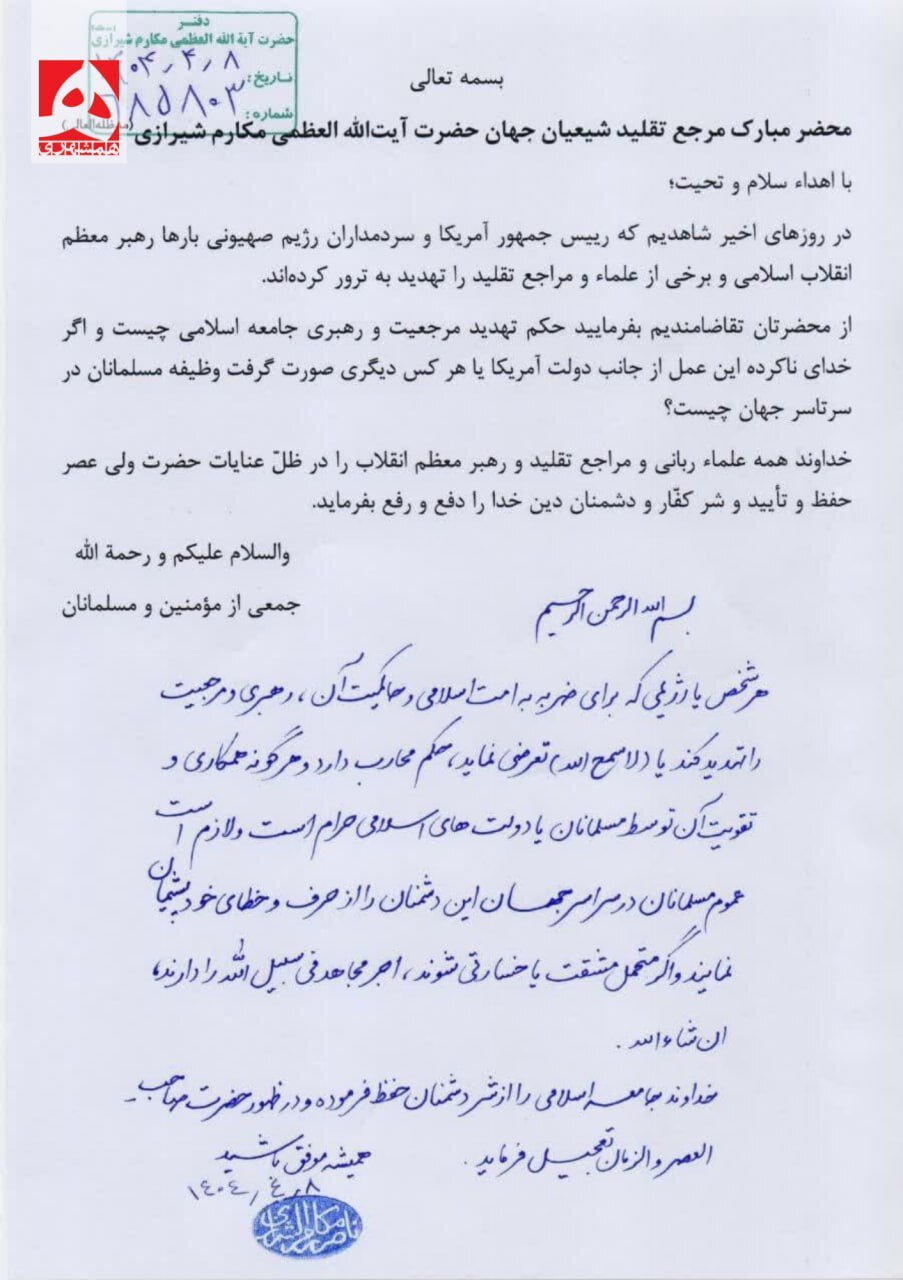 دفتر
حضرت آیة الله العظمی مکارم شیرازی
تاریخ: ۱۴۰۴/۴/۸
شماره:
همشهری
بسمه تعالی
محضر مبارک مرجع تقلید شیعیان جهان حضرت آیت‌الله العظمی مکارم شیرازی (مدظله‌العالی)
با اهداء سلام و تحیت؛
در روزهای اخیر شاهدیم که رییس جمهور آمریکا و سردمداران رژیم صهیونی بارها رهبر معظم
انقلاب اسلامی و برخی از علماء و مراجع تقلید را تهدید به ترور کرده‌اند.
از محضرتان تقاضامندیم بفرمایید حکم تهدید مرجعیت و رهبری جامعه اسلامی چیست و اگر
خدای ناکرده این عمل از جانب دولت آمریکا یا هر کس دیگری صورت گرفت وظیفه مسلمانان در
سرتاسر جهان چیست؟
خداوند همه علماء ربانی و مراجع تقلید و رهبر معظم انقلاب را در ظلّ عنایات حضرت ولی عصر
حفظ و تأیید و شر کفّار و دشمنان دین خدا را دفع و رفع بفرماید.
والسلام علیکم و رحمة الله
جمعی از مؤمنین و مسلمانان
بسم الله الرحمن الرحیم
هر شخص یا رژیمی که برای ضربه به امت اسلامی و حاکمیت آن، رهبری و مرجعیت
را تهدید کند یا (لا سمح الله) تعرضی نماید، حکم محارب دارد و هرگونه همکاری و
تقویت آن توسط مسلمانان یا دولت های اسلامی حرام است و لازم است
عموم مسلمانان در سراسر جهان این دشمنان را از حرف و خطای خود پشیمان
نمایند و اگر متحمل مشقت یا خسارتی شوند، اجر مجاهد فی سبیل الله را دارند،
ان شاء الله.
خداوند جامعه اسلامی را از شر دشمنان حفظ فرموده و در ظهور حضرت صاحب
العصر و الزمان تعجیل فرماید.
همیشه موفق باشید
۱۴۰۴/۴/۸
ناصر مکارم الشیرازی